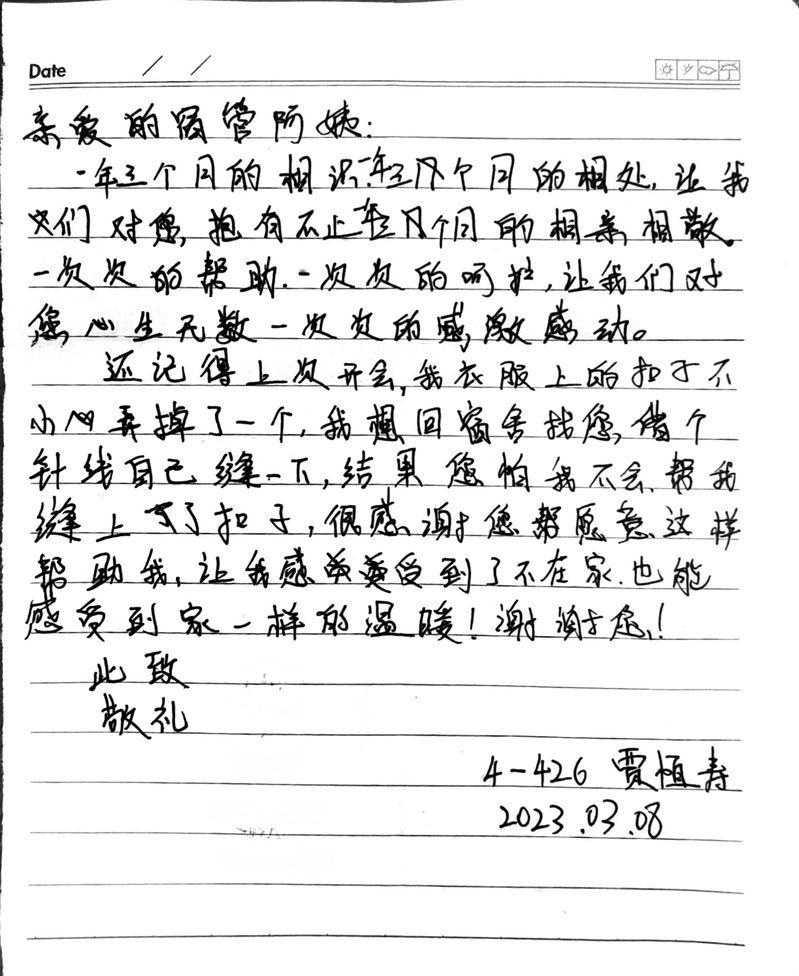 Date / /
亲爱的宿管阿姨:
一年三个月的相识,一年零几个月的相处,让我
们对您,抱有不止一年零几个月的相亲相敬。
一次次的帮助.一次次的呵护,让我们对
您心生无数一次次的感激感动。
还记得上次开会,我衣服上的扣子不
小心弄掉了一个,我想回宿舍找您借个
针线自己缝一下,结果您怕我不会,帮我
缝上了扣子,很感谢您愿意这样
帮助我,让我感受到了不在家.也能
感受到家一样的温暖!谢谢您!
此致
敬礼
4-426 贾恒寿
2023.03.08